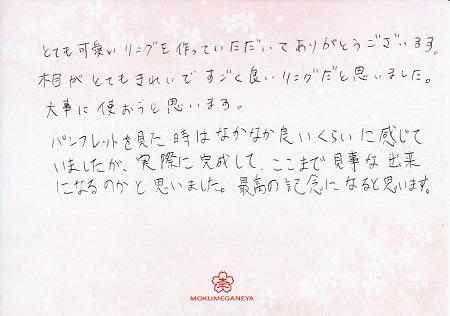 とても可愛いリングを作っていただいてありがとうございます。
木目がとてもきれいですごく良いリングだと思いました。
大事に使おうと思います。
パンフレットを見た時はなかなか良いくらいに感じて
いましたが、実際に完成して、ここまで見事な出来
になるのかと思いました。最高の記念になると思います。
MOKUMEGANEYA